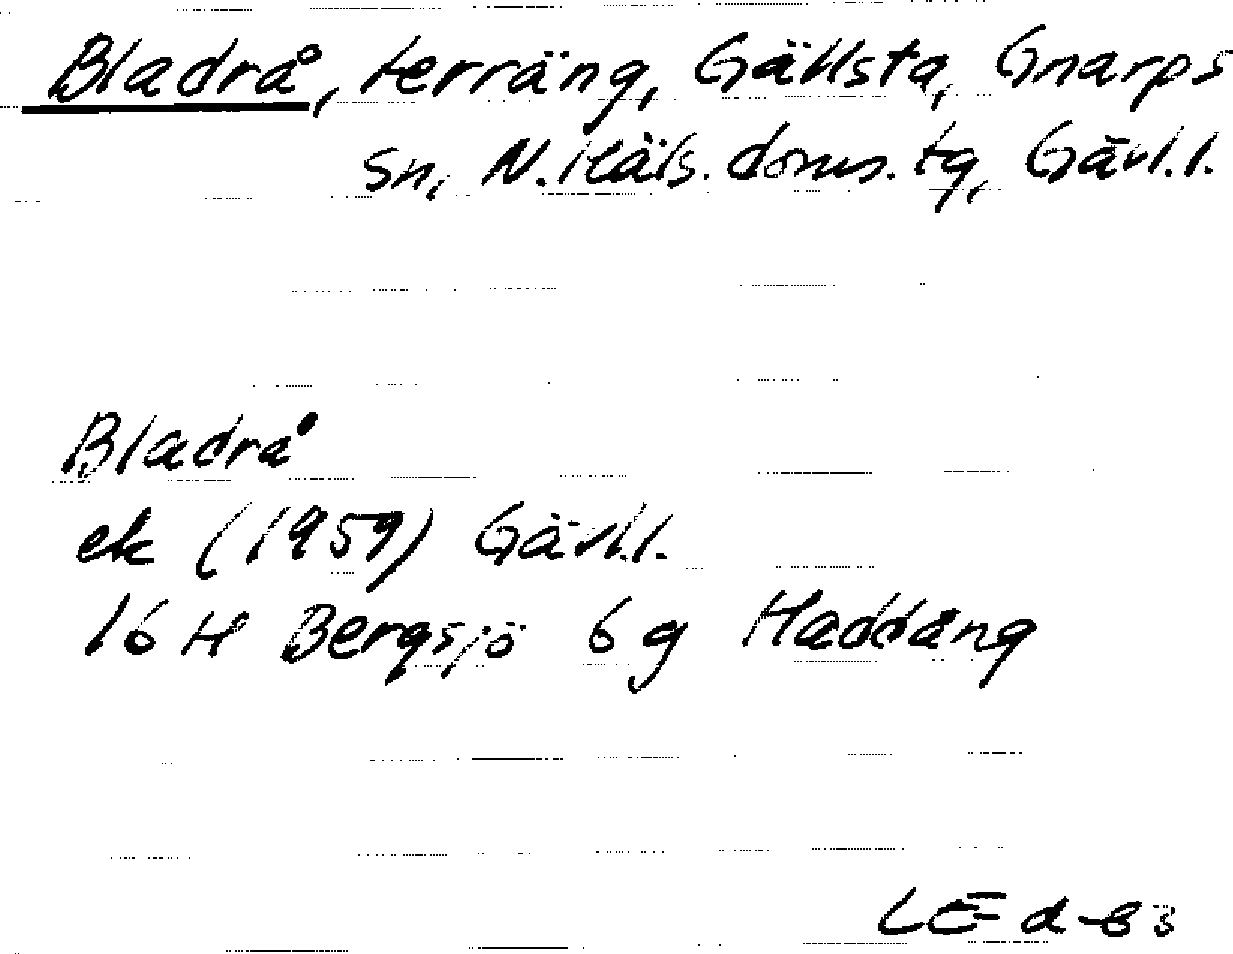 Bladrå, terräng, Gällsta, Gnarps
sn, N. Häls. doms. tg, Gävl.l.
Bladrå
ek (1959) Gävl.l.
16 H Bergsjö 6 g Haddäng
LE d-83